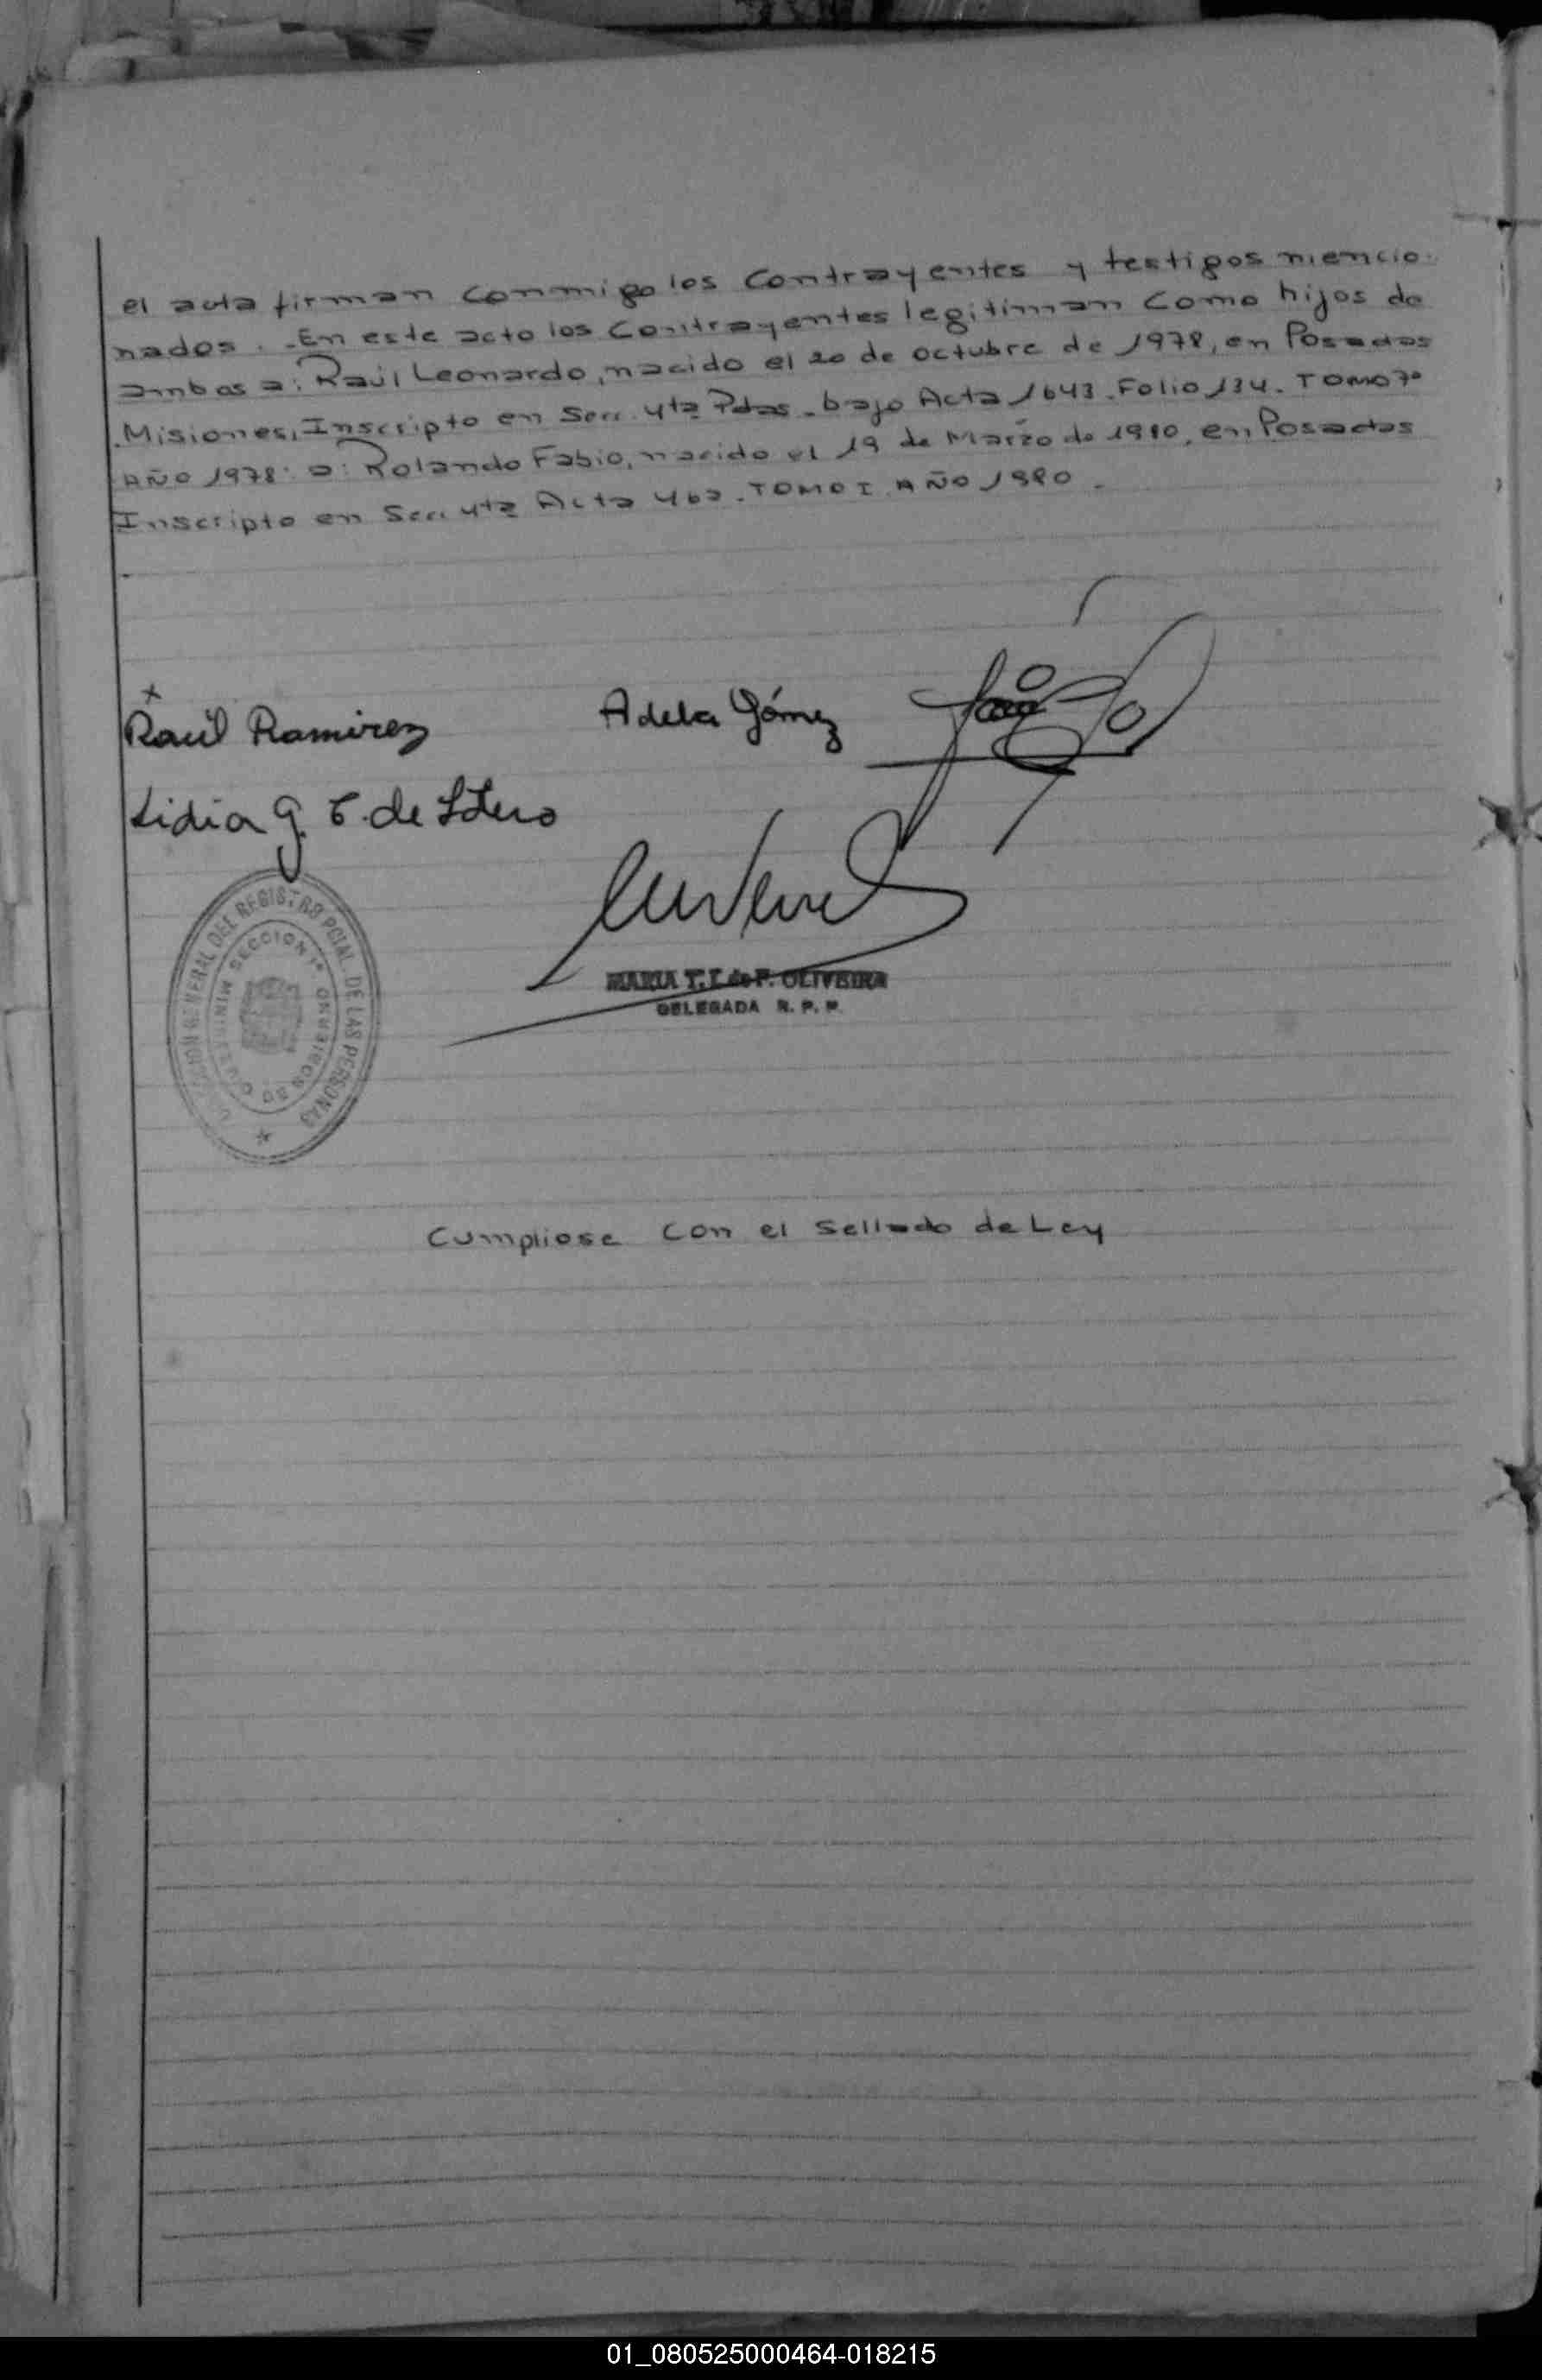 el acta firman conmigo los contrayentes y testigos mencio
nados. - En este acto los contrayentes legitiman como hijos de
ambos a: Raúl Leonardo, nacido el 20 de octubre de 1978, en Posadas
Misiones, Inscripto en Secc. 4ta Pdas. bajo Acta 1643. Folio 134. TOMO 7º
AÑO 1978. a: Rolando Fabio, nacido el 19 de Marzo de 1980, en Posadas
Inscripto en Secc 4ta Acta 462. TOMO I. AÑO 1980 -
x
Raúl Ramirez
Adela Gómez
Lidia G. de
MARIA T. I. de F. OLIVEIRA
DELEGADA R. P. P.
GENERAL DEL REGISTRO PCIAL. DE LAS PERSONAS
SECCION 1ª
Cumpliose con el sellado de Ley
01_080525000464-018215